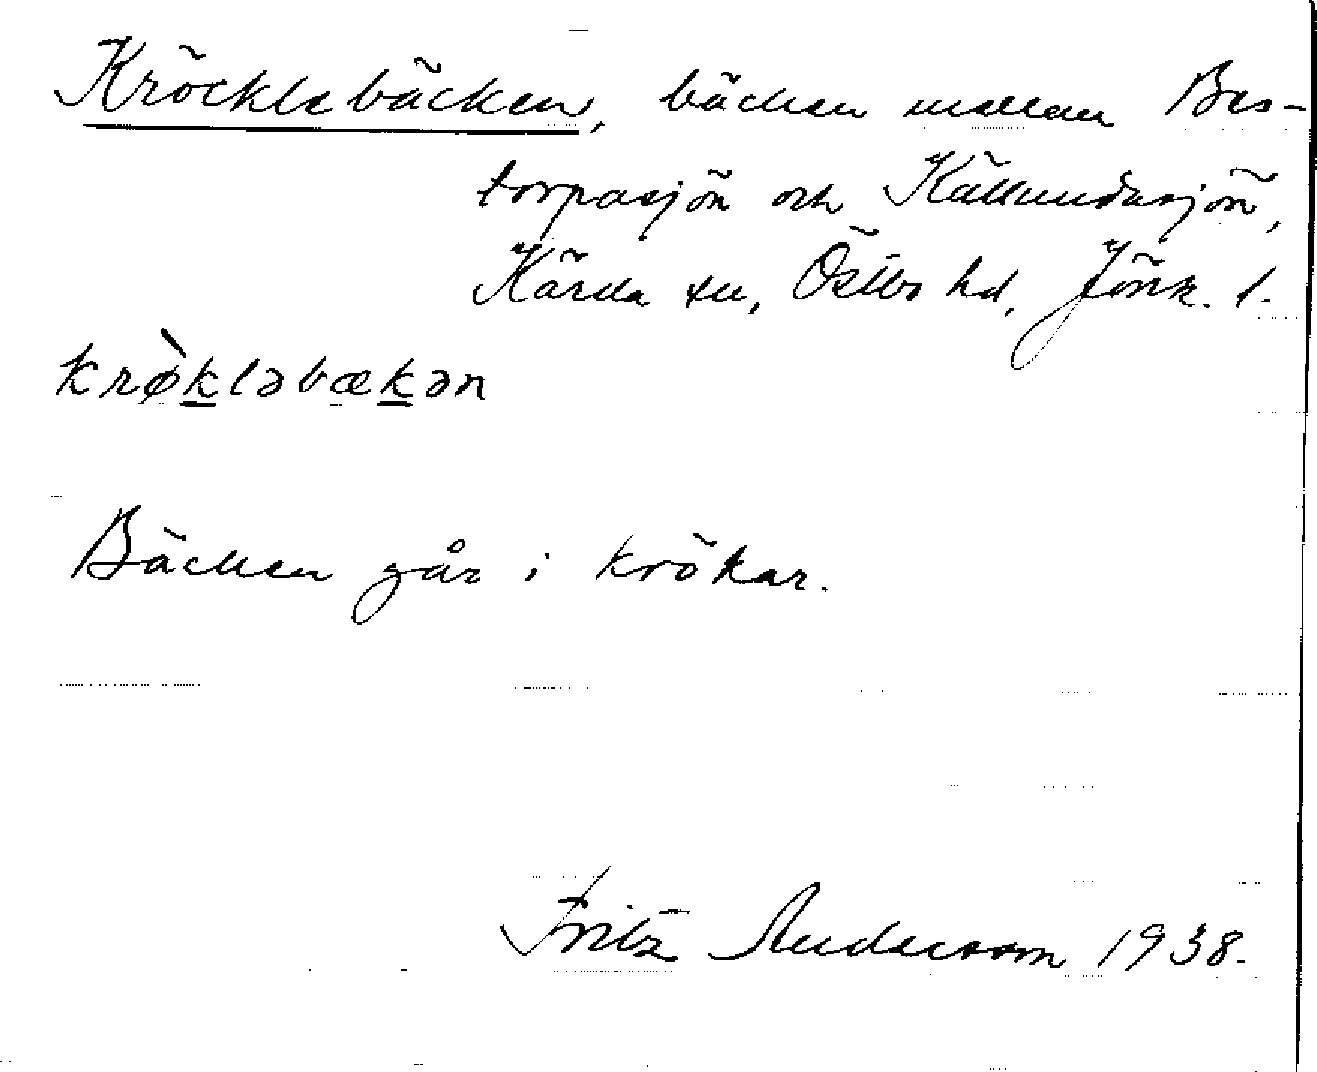 Kröcklebäcken, bäcken mellan Bes-
torpasjön och Källundasjön,
Kärda sn, Östbo hd, Jönk. l.
krø̀kləbækən
Bäcken går i krökar.
Fritz Andersson 1938.